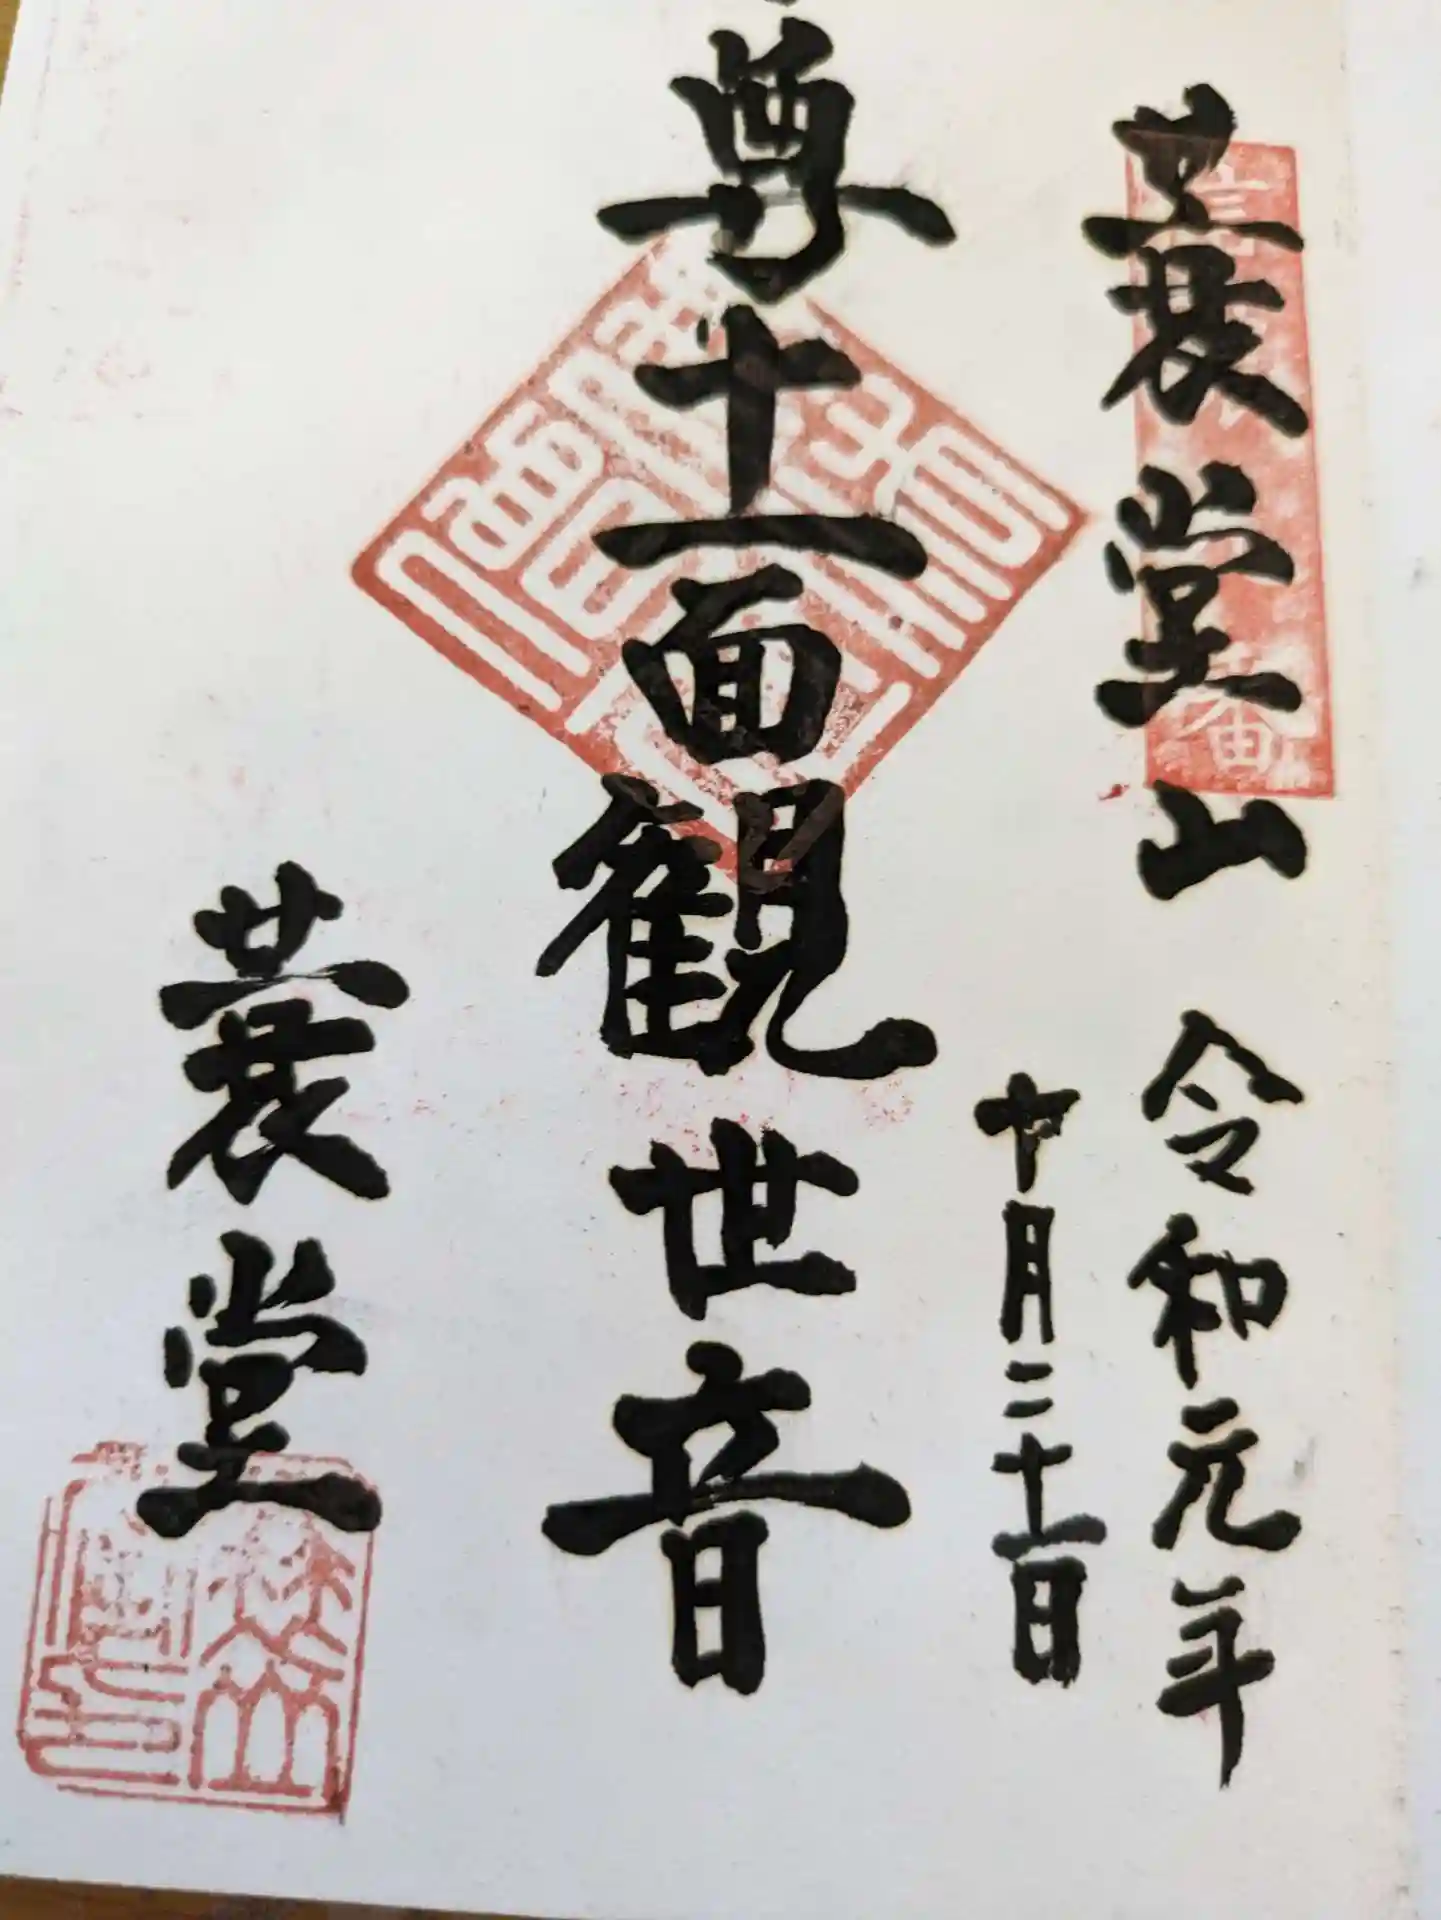 蓑堂山　令和元年
十月二十一日
尊十一面観世音
蓑堂
番